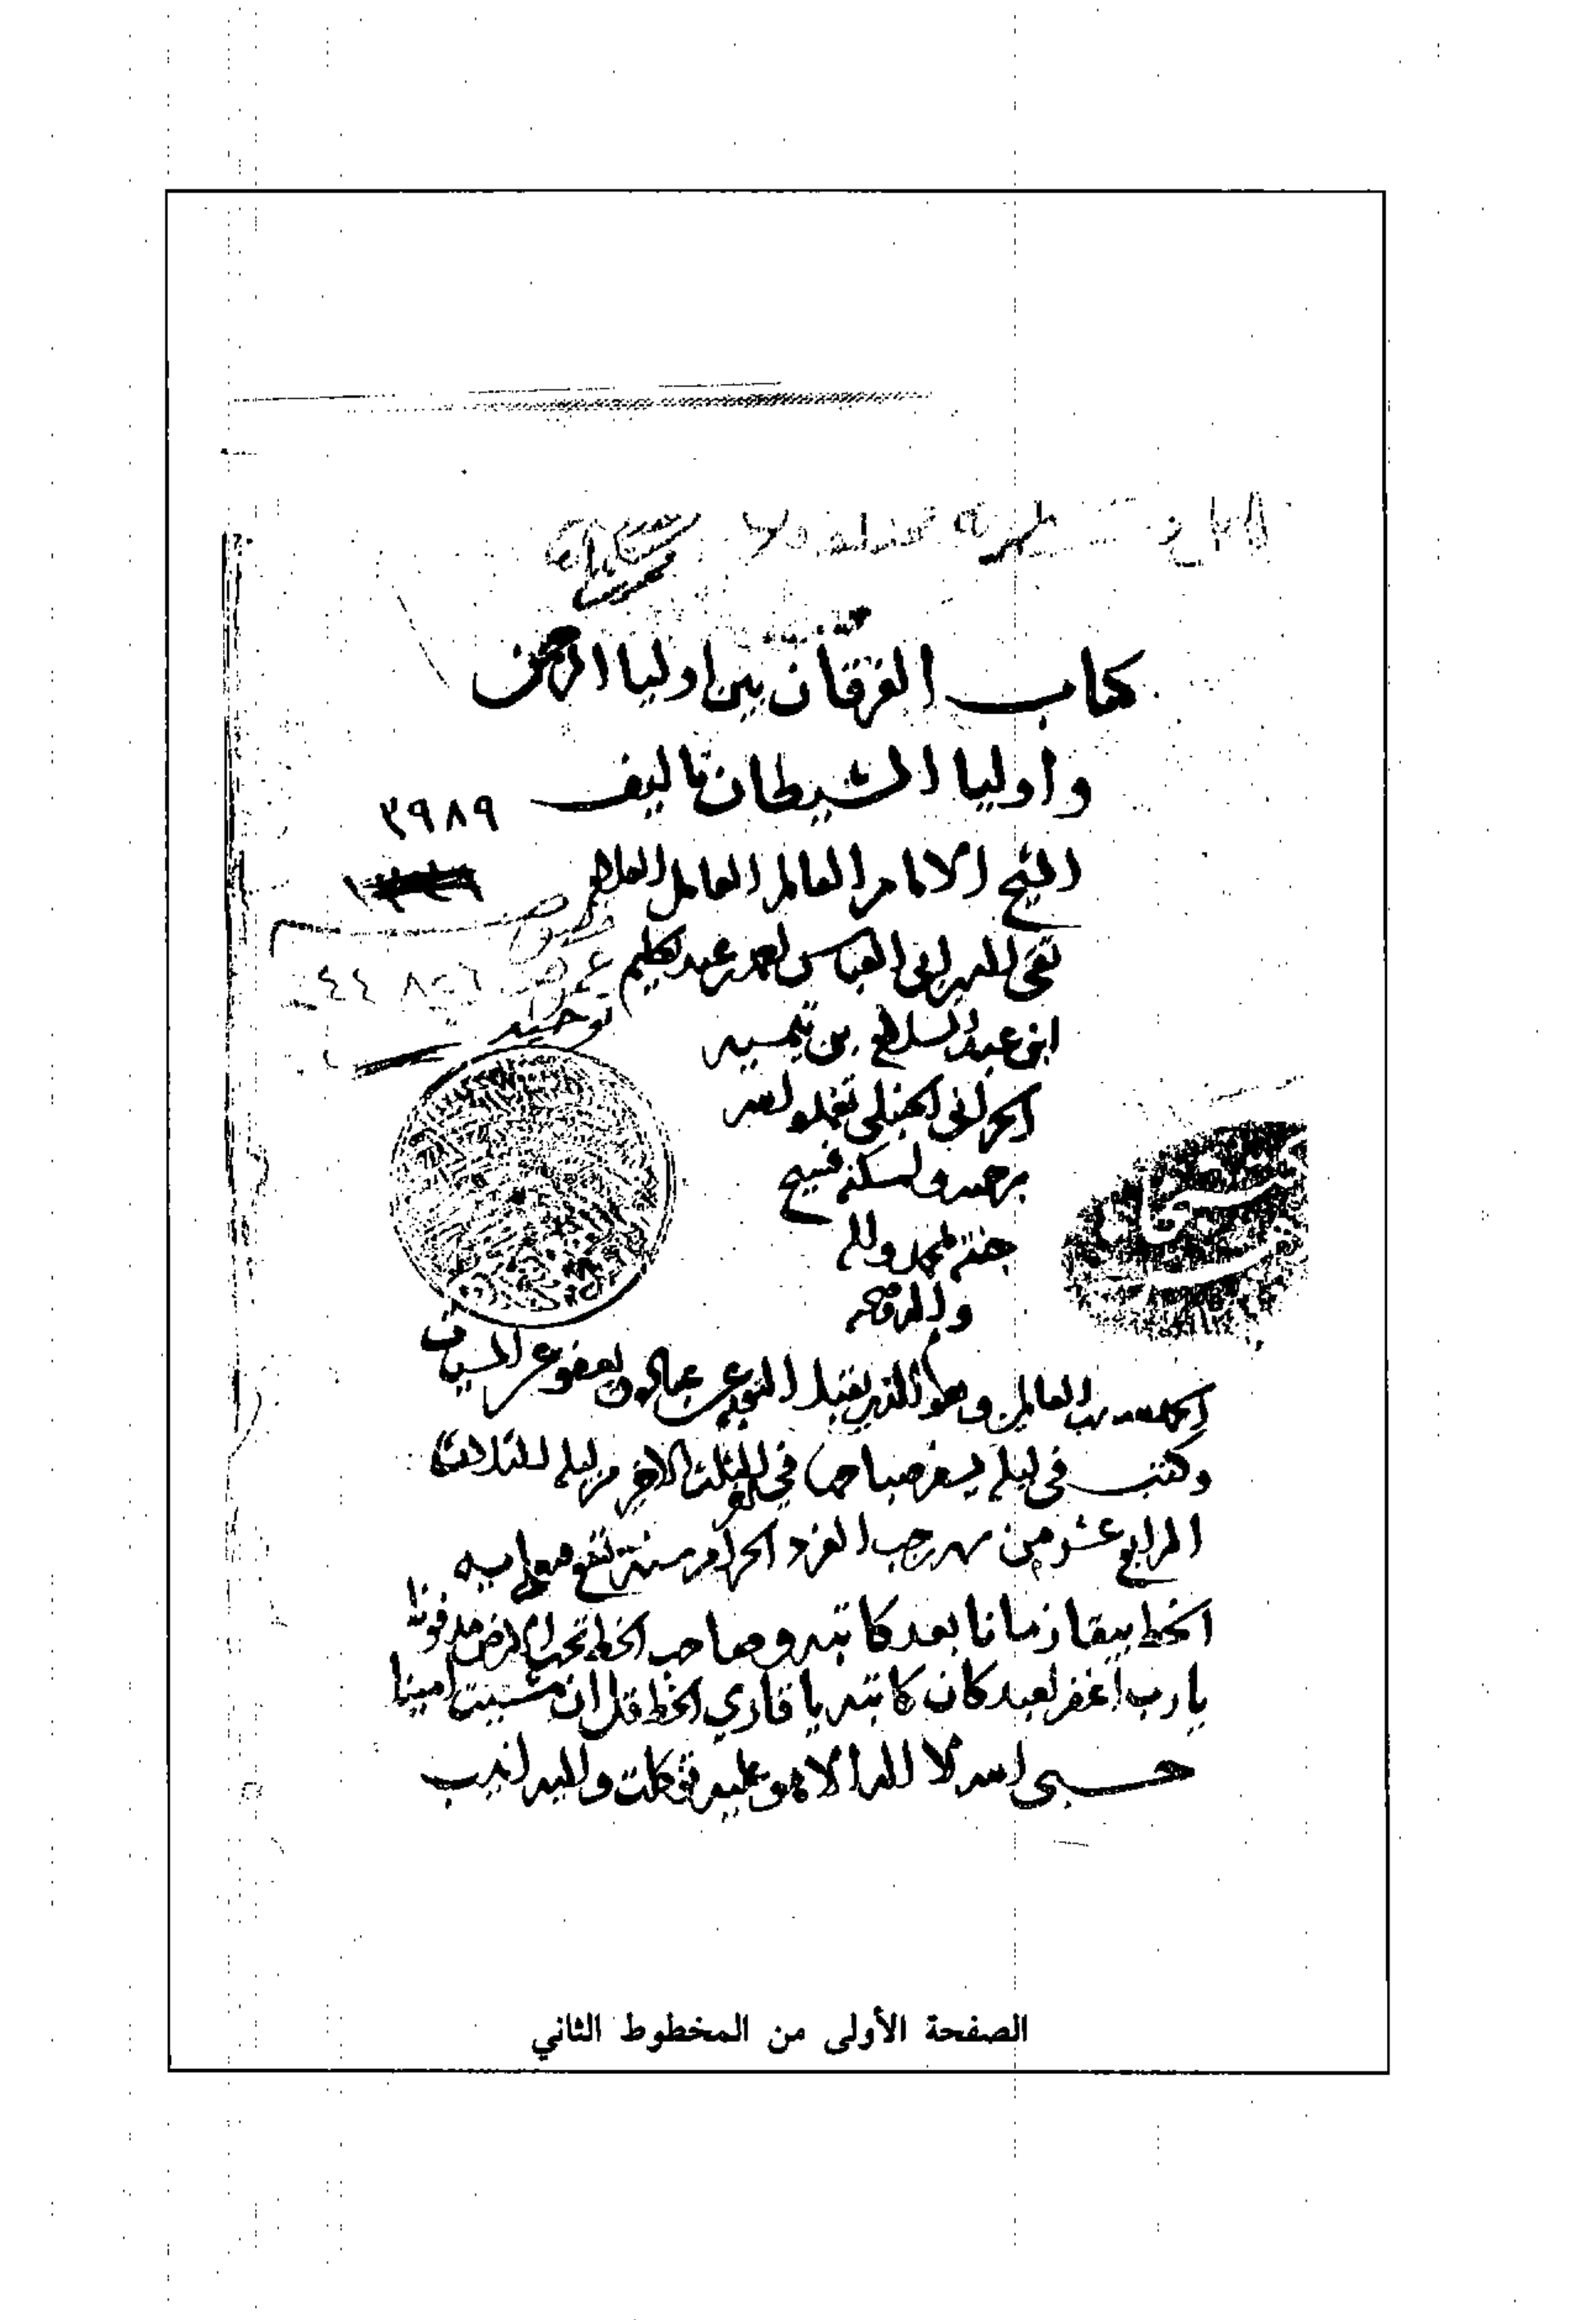 كتاب الفرقان بين اوليا الرحمن
واوليا الشيطان تاليف
٣٩٨٩
الشيخ الامام العالم العامل العلامه
تقى الدين ابى العباس احمد بن عبد الحليم
ابن عبد السلام بن تيميه
الحرانى الحنبلى تغمده الله
برحمته واسكنه فسيح
جنته بمحمد واله
توحيد
الحمد لله رب العالمين وهو الذى يقبل التوبه عن عباده ويعفو عن السيات
وكتب فى ليله يسفر صباحها فى الثلث الاخر من ليله الثلاثا
الرابع عشر من شهر رجب الفرد الحرام سنه تسع
الخط يبقا زمانا بعد كاتبه وصاحب الخط تحت الارض مدفونا
يا رب اغفر لعبد كان كاتبه يا قاري الخط قل ان شييت امينا
حسبى الله لا اله الا هو عليه توكلت واليه انيب
الصفحة الأولى من المخطوط الثاني